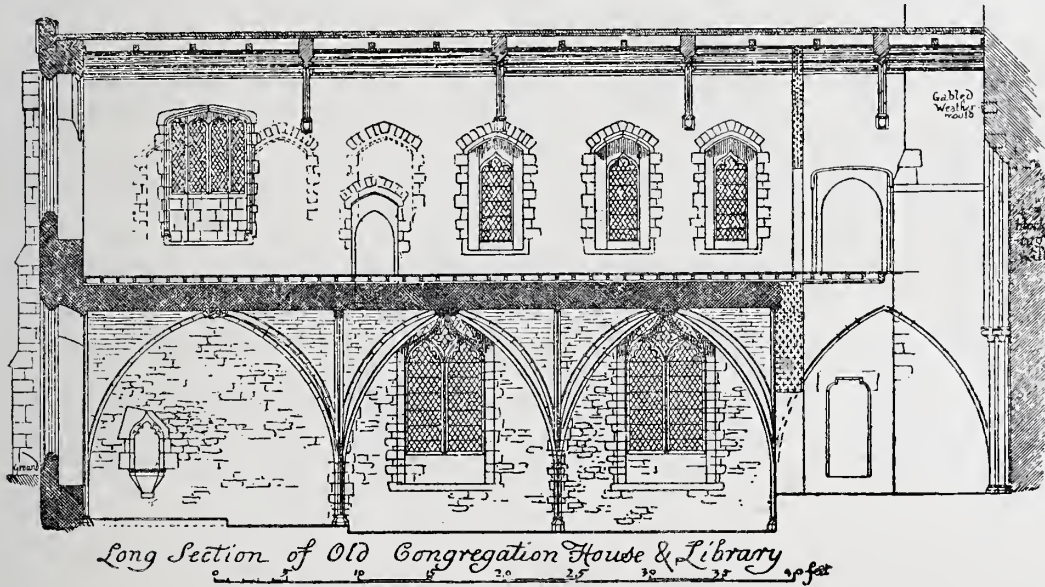 Gabled
Weather
mould
Ground
Long Section of Old Congregation House & Library
0 5 10 15 20 25 30 35 40 feet